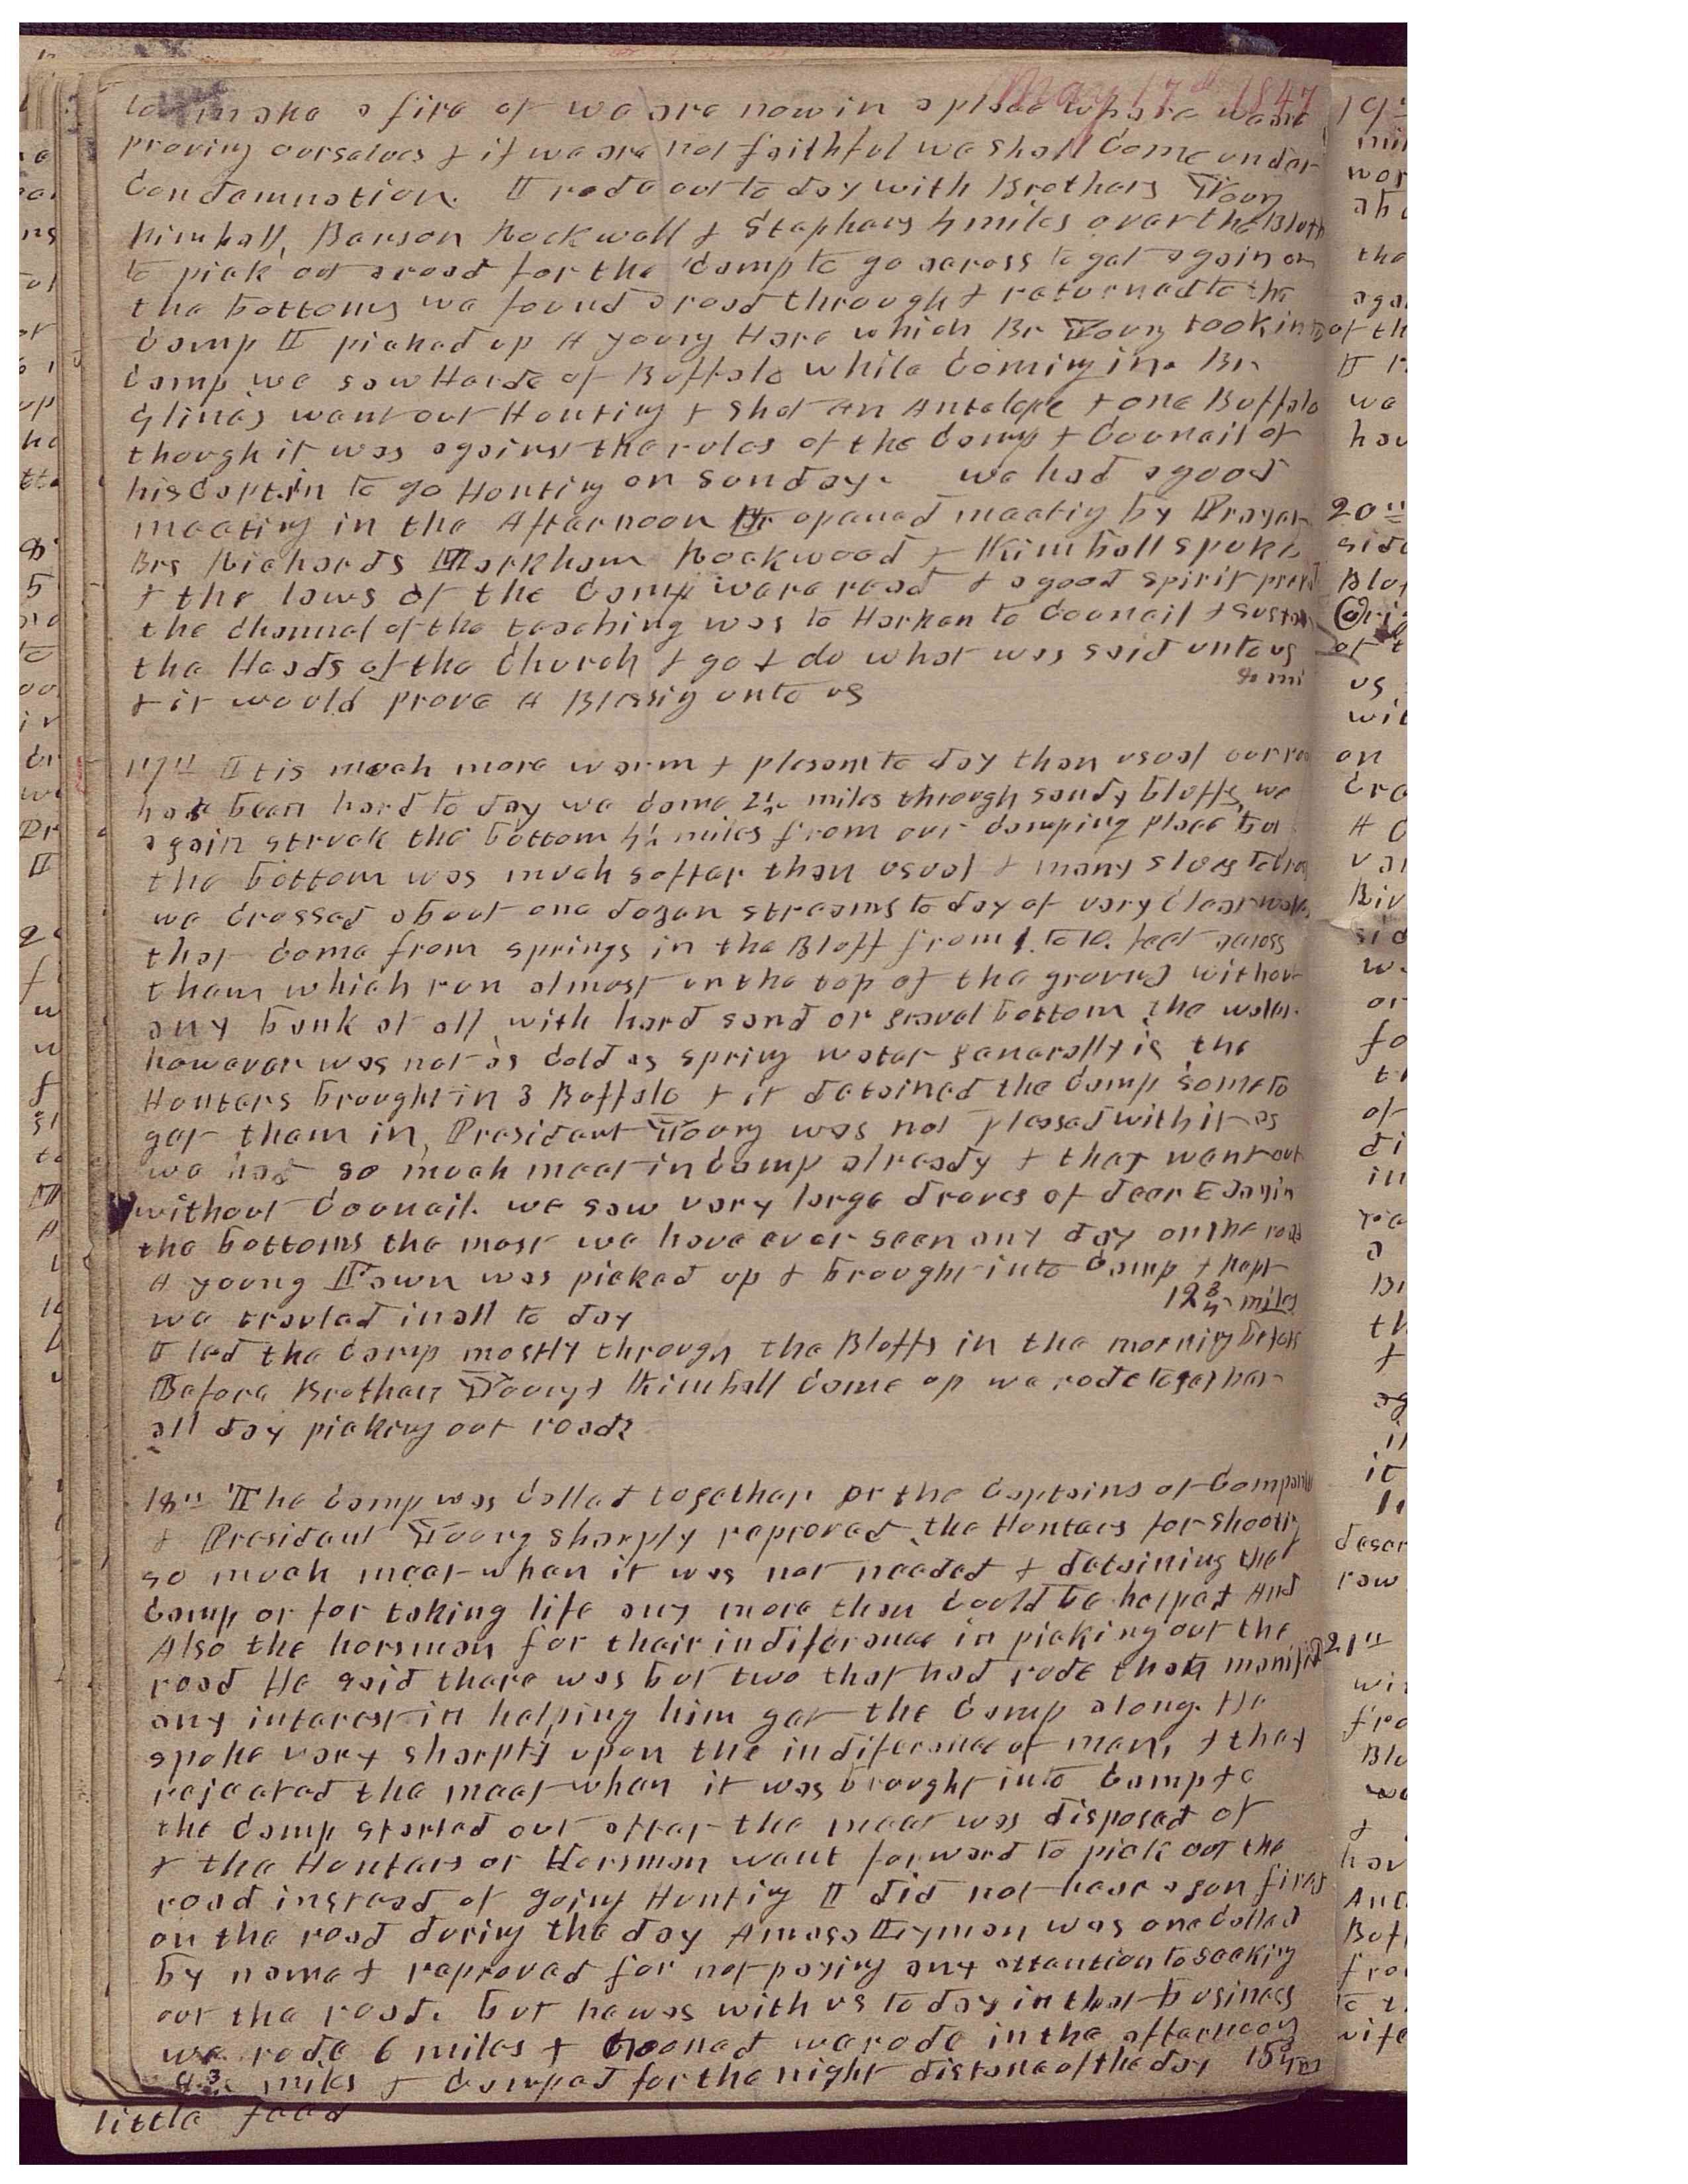 May 17th 1847
to make a fire of we are now in a place whare we are
proving ourselves & if we are not faithful we shall Come under
Condemnation. I rode out to day with Brothers Young
Kimball, Benson Rockwell & Stephens 4 miles over the Bluffs
to pick out a road for the Camp to go across to get again on
the bottoms we found a road through & returned to the
Camp I picked up A young Hare which Br Young took into
Camp we saw Herds of Buffalo while Coming in. Br
Glines went out Hunting & shot An Antelope & one Buffalo
though it was against the rules of the Camp & Council of
his Captin to go Hunting on Sunday. we had a good
meeting in the Afternoon opened meeting by Prayer
Brs Richards Markham Rockwood & Kimball spoke
& the laws of the Camp ware read & a good spirit
the Channel of the teaching was to Harken to Council & sustain
the Heads of the Church & go & do what was said unto us
& it would prove A Blessing unto us
17" It is much more warm & plesant to day than usual our road
has been hard to day we Come 2¼ miles through sandy bluffs, we
again struck the bottom 4¼ miles from our Camping place but
the bottom was much softer than usual & many slues to cross
we Crossed about one dozen streams to day of very Clear water
that Come from springs in the Bluff from 1. to 10. feet across
them which run almost on the top of the ground without
any bank at all, with hard sand or gravel bottom the water
however was not as Cold as spring water generally is the
Hunters brought in 3 Buffalo & it detained the Camp some to
get them in, President Young was not pleased with it as
we had so much meat in Camp already & they went out
without Council. we saw very large droves of deer Again
the bottoms the most we have ever seen any day on the road
A young Fawn was picked up & brought into Camp & kept
we traviled in all to day 12¾ miles
I led the Camp mostly through the Bluffs in the morning before
Before Brother Young & Kimball Come up we rode together
all day picking out roads
18" The Camp was Called together or the Captains of Companies
& President Young sharply reproved the Hunters for shooting
so much meat when it was not needed & detaining the
Camp or for taking life any more than Could be helped And
Also the horsmen for their indiferance in picking out the
road He said there was but two that had rode that manifested
any interest in helping him get the Camp along. He
spoke very sharply upon the indiferance of men, & they
rejected the meat when it was brought into Camp &c
the Camp started out after the meat was disposed of
& the Hunters or Horsmen went forward to pick out the
road instead of going Hunting I did not hear a gun fired
on the road during the day Amasa Lyman was one Called
by name & reproved for not paying any attention to seeking
out the road. but he was with us to day in that business
we rode 6 miles & nooned we rode in the afternoon
miles & Camped for the night distance of the day
little food